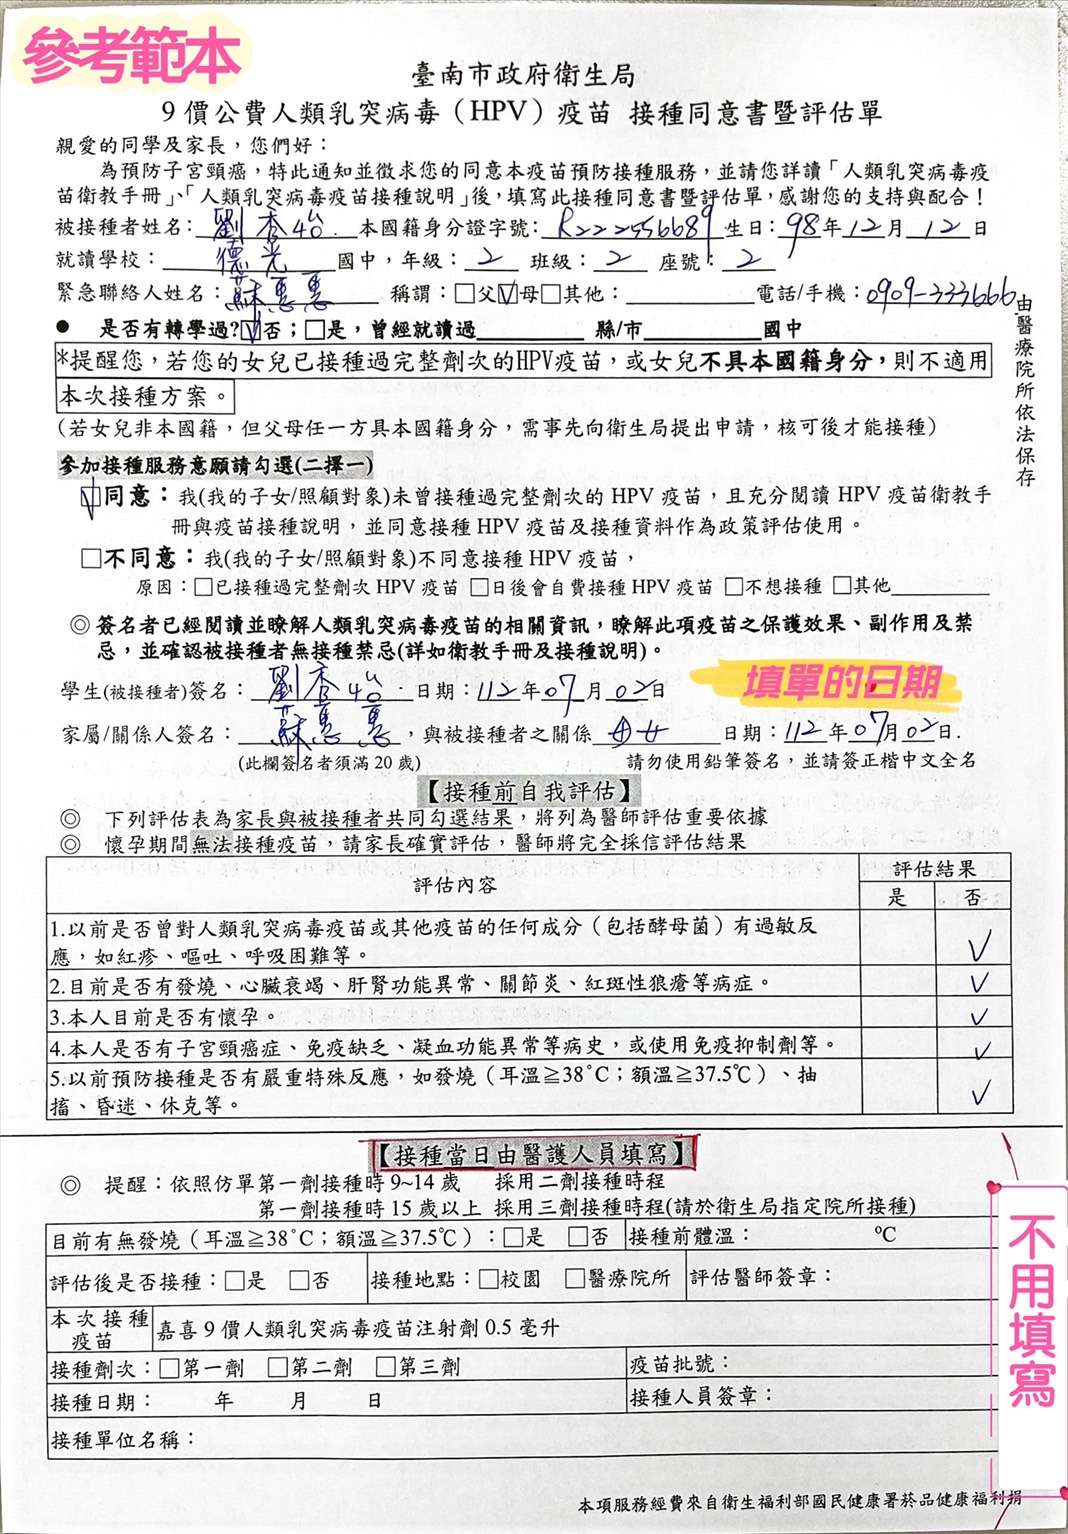 參考範本
臺南市政府衛生局
9價公費人類乳突病毒（HPV）疫苗 接種同意書暨評估單
親愛的同學及家長，您們好：
為預防子宮頸癌，特此通知並徵求您的同意本疫苗預防接種服務，並請您詳讀「人類乳突病毒疫
苗衛教手冊」、「人類乳突病毒疫苗接種說明」後，填寫此接種同意書暨評估單，感謝您的支持與配合！
被接種者姓名：劉香 本國籍身分證字號：R222556689 生日：98年12月12日
就讀學校：德光國中，年級：2 班級：2 座號：2
緊急聯絡人姓名：蘇惠惠 稱謂：□父☑母□其他： 電話/手機：0909-333666
● 是否有轉學過?☑否；□是，曾經就讀過 縣/市 國中
*提醒您，若您的女兒已接種過完整劑次的HPV疫苗，或女兒不具本國籍身分，則不適用
本次接種方案。
（若女兒非本國籍，但父母任一方具本國籍身分，需事先向衛生局提出申請，核可後才能接種）
由醫療院所依法保存
參加接種服務意願請勾選(二擇一)
☑同意：我(我的子女/照顧對象)未曾接種過完整劑次的 HPV 疫苗，且充分閱讀 HPV 疫苗衛教手
冊與疫苗接種說明，並同意接種 HPV 疫苗及接種資料作為政策評估使用。
□不同意：我(我的子女/照顧對象)不同意接種 HPV 疫苗，
原因：□已接種過完整劑次 HPV 疫苗 □日後會自費接種 HPV 疫苗 □不想接種 □其他
◎ 簽名者已經閱讀並瞭解人類乳突病毒疫苗的相關資訊，瞭解此項疫苗之保護效果、副作用及禁
忌，並確認被接種者無接種禁忌(詳如衛教手冊及接種說明)。
填單的日期
學生(被接種者)簽名：劉香 日期：112年07月02日
家屬/關係人簽名：蘇惠惠，與被接種者之關係 母女 日期：112年07月02日.
(此欄簽名者須滿 20 歲) 請勿使用鉛筆簽名，並請簽正楷中文全名
【接種前自我評估】
◎ 下列評估表為家長與被接種者共同勾選結果，將列為醫師評估重要依據
◎ 懷孕期間無法接種疫苗，請家長確實評估，醫師將完全採信評估結果
評估內容 評估結果
是 否
1.以前是否曾對人類乳突病毒疫苗或其他疫苗的任何成分（包括酵母菌）有過敏反
應，如紅疹、嘔吐、呼吸困難等。 ✓
2.目前是否有發燒、心臟衰竭、肝腎功能異常、關節炎、紅斑性狼瘡等病症。 ✓
3.本人目前是否有懷孕。 ✓
4.本人是否有子宮頸癌症、免疫缺乏、凝血功能異常等病史，或使用免疫抑制劑等。 ✓
5.以前預防接種是否有嚴重特殊反應，如發燒（耳溫≧38˚C；額溫≧37.5℃）、抽
搐、昏迷、休克等。 ✓
【接種當日由醫護人員填寫】
◎ 提醒：依照仿單第一劑接種時 9~14 歲 採用二劑接種時程
第一劑接種時 15 歲以上 採用三劑接種時程(請於衛生局指定院所接種)
目前有無發燒（耳溫≧38˚C；額溫≧37.5℃）：□是 □否 接種前體溫： ℃
評估後是否接種：□是 □否 接種地點：□校園 □醫療院所 評估醫師簽章：
本次接種
疫苗 嘉喜 9 價人類乳突病毒疫苗注射劑 0.5 毫升
接種劑次：□第一劑 □第二劑 □第三劑 疫苗批號：
接種日期： 年 月 日 接種人員簽章：
接種單位名稱：
不用填寫
本項服務經費來自衛生福利部國民健康署菸品健康福利捐